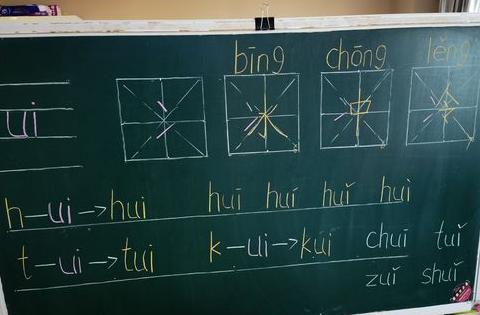 bīng chōng lěng
ui 冫 冰 冲 冷
h—ui→hui huī huí huǐ huì
t—ui→tui k—ui→kui chuī tuǐ
zuǐ shuǐ